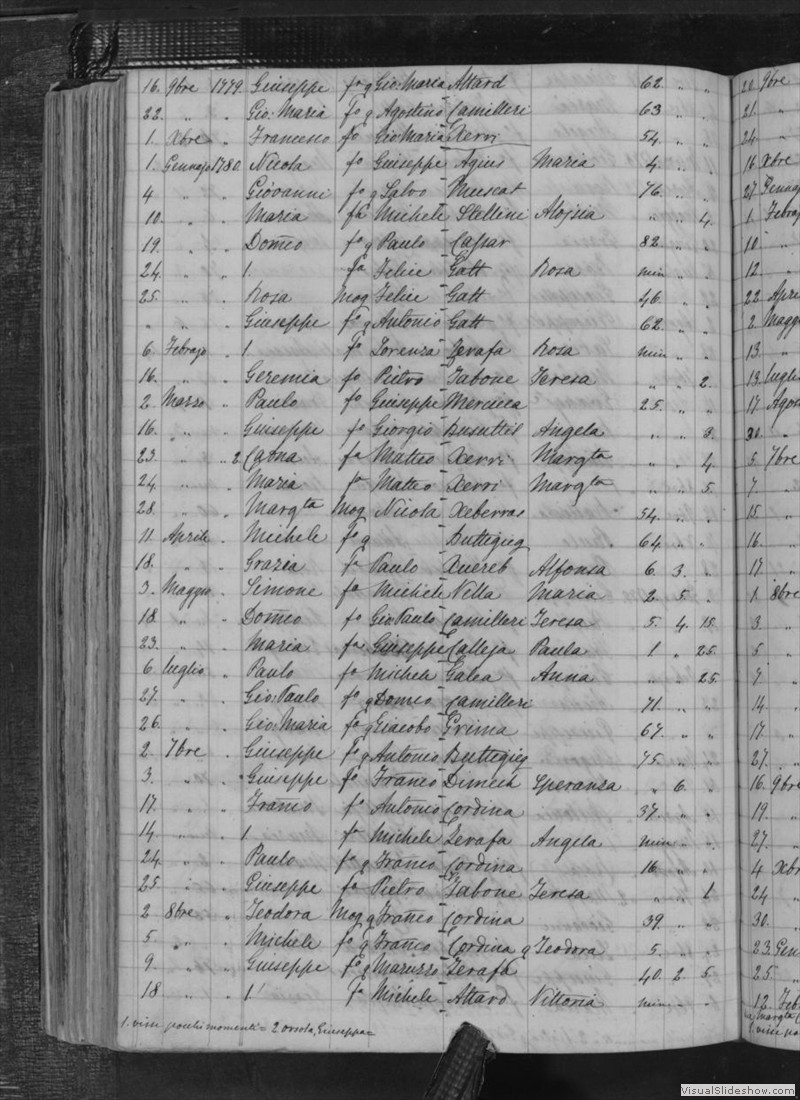 16. 9bre 1779 Giuseppe fo q Gio: Maria Attard 62. " "
22. " " Gio: Maria fo q Agostino Camilleri 63 " "
1. Xbre " Francesco fo Gio Maria Xerri 54. " "
1. Gennajo 1780. Nicola fo Giuseppe Agius Maria 4. " "
4 " " Giovanni fo q Salvo Muscat 76. " "
10. " " Maria fa Michele Stellini Alojsia " " 4.
19. " " Domco fo q Paulo Cassar 82. " "
24. " " 1. fa Felice Gatt Rosa min " "
25. " " Rosa Mog Felice Gatt 46. " "
" " " Giuseppe fo q Antonio Gatt 62. " "
6. Febrajo " 1 fo Lorenzo Zerafa Rosa min " "
16. " " Geremia fo Pietro Tabone Teresa " " 2.
2. Marzo " Paulo fo Giuseppe Mercieca 25. " "
16. " " Giuseppe fo Giorgio Busuttil Angela " " 3.
23. " " 2. Catna fa Matteo Xerri Margta " " 4
24 " " Maria fa Matteo Xerri Margta " " 5.
28 " " Margta Mog Nicola Xeberras 54. " "
11. Aprile " Michele fo q Buttigieg 64. " "
18. " " Grazia fa Paulo Xuereb Alfonsa 6. 3. "
3. Maggio " Simone fo Michele Vella Maria 2. 5 "
18. " " Domco fo Gio Paulo Camilleri Teresa 5. 4. 15.
23. " " Maria fa Giuseppe Calleja Paula 1 " 25.
6. luglio " Paulo fo Michele Galea Anna " " 25.
27. " " Gio: Paulo fo q Domco Camilleri 71. " "
26. " " Gio: Maria fo q Giacobo Grima 67. " "
2. 7bre " Giuseppe fo q Antonio Buttigieg 75. " "
3. " " Giuseppe fo Franco Dimech Speranza " 6. "
17. " " Franco fo Antonio Cordina 37. " "
14. " " 1 fo Michele Zerafa Angela min " "
24. " " Paulo fo q Franco Cordina 16. " "
25 " " Giuseppe fo Pietro Tabone Teresa " " 1
2 8bre " Teodora Mog q Franco Cordina 39. " "
5. " " Michele fo q Franco Cordina q Teodora 5. " "
9. " " Giuseppe fo q Maruzzo Zerafa 40. 2 5.
18 " " 1. fa Michele Attard Vittoria min " "
1. visse pochi momenti = 2 ossola, Giuseppa =
20 9bre
21. "
24. "
16 Xbre
27 Gennajo
1. Febrajo
10. "
12. "
22. Aprile
2. Maggio
13. "
13. luglio
17. Agosto
30. "
5. 7bre
7. "
15. "
16. "
17 "
1. 8bre
3. "
5 "
7 "
14. "
17. "
27. "
16. 9bre
19. "
27. "
4 Xbre
24 "
30. "
23. Gen
25. "
12. Feb
VisualSlideshow.com